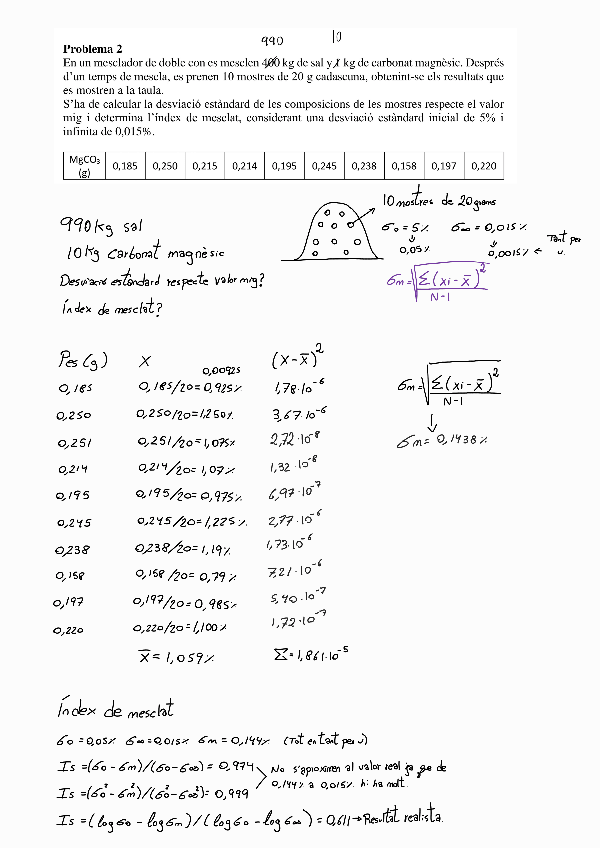 990 10
Problema 2
En un mesclador de doble con es mesclen 400 kg de sal y 1 kg de carbonat magnèsic. Després
d'un temps de mescla, es prenen 10 mostres de 20 g cadascuna, obtenint-se els resultats que
es mostren a la taula.
S'ha de calcular la desviació estàndard de les composicions de les mostres respecte el valor
mig i determina l'índex de mesclat, considerant una desviació estàndard inicial de 5% i
infinita de 0,015%.
MgCO₃ (g) 0,185 0,250 0,215 0,214 0,195 0,245 0,238 0,158 0,197 0,220
10 mostres de 20 grams
990 kg sal
σ₀ = 5% σ∞ = 0,015%
10 kg carbonat magnèsic
0,05% 0,0015% ← Tant per u.
Desviació estàndard respecte valor mig?
σm = √Σ(xi - x̄)² / N-1
Índex de mesclat?
Pes (g) X (x-x̄)²
0,00925
0,185 0,185/20=0,925% 1,78·10⁻⁶
σm = √Σ(xi - x̄)² / N-1
0,250 0,250/20=1,250% 3,67·10⁻⁶
0,251 0,251/20=1,075% 2,72·10⁻⁸
σm = 0,1438%
0,214 0,214/20=1,07% 1,32·10⁻⁸
0,195 0,195/20=0,975% 6,97·10⁻⁷
0,245 0,245/20=1,225% 2,77·10⁻⁶
0,238 0,238/20=1,19% 1,73·10⁻⁶
0,158 0,158/20=0,79% 7,21·10⁻⁶
0,197 0,197/20=0,985% 5,40·10⁻⁷
0,220 0,220/20=1,100% 1,72·10⁻⁷
x̄ = 1,059% Σ = 1,861·10⁻⁵
Índex de mesclat
σ₀ = 0,05% σ∞ = 0,015% σm = 0,144% (Tot en tant per u)
Is = (σ₀ - σm)/(σ₀ - σ∞) = 0,974
No s'aproximen al valor real ja que de
0,144% a 0,015% hi ha molt.
Is = (σ₀² - σm²)/(σ₀² - σ∞²) = 0,999
Is = (log σ₀ - log σm)/(log σ₀ - log σ∞) = 0,611 → Resultat realista.